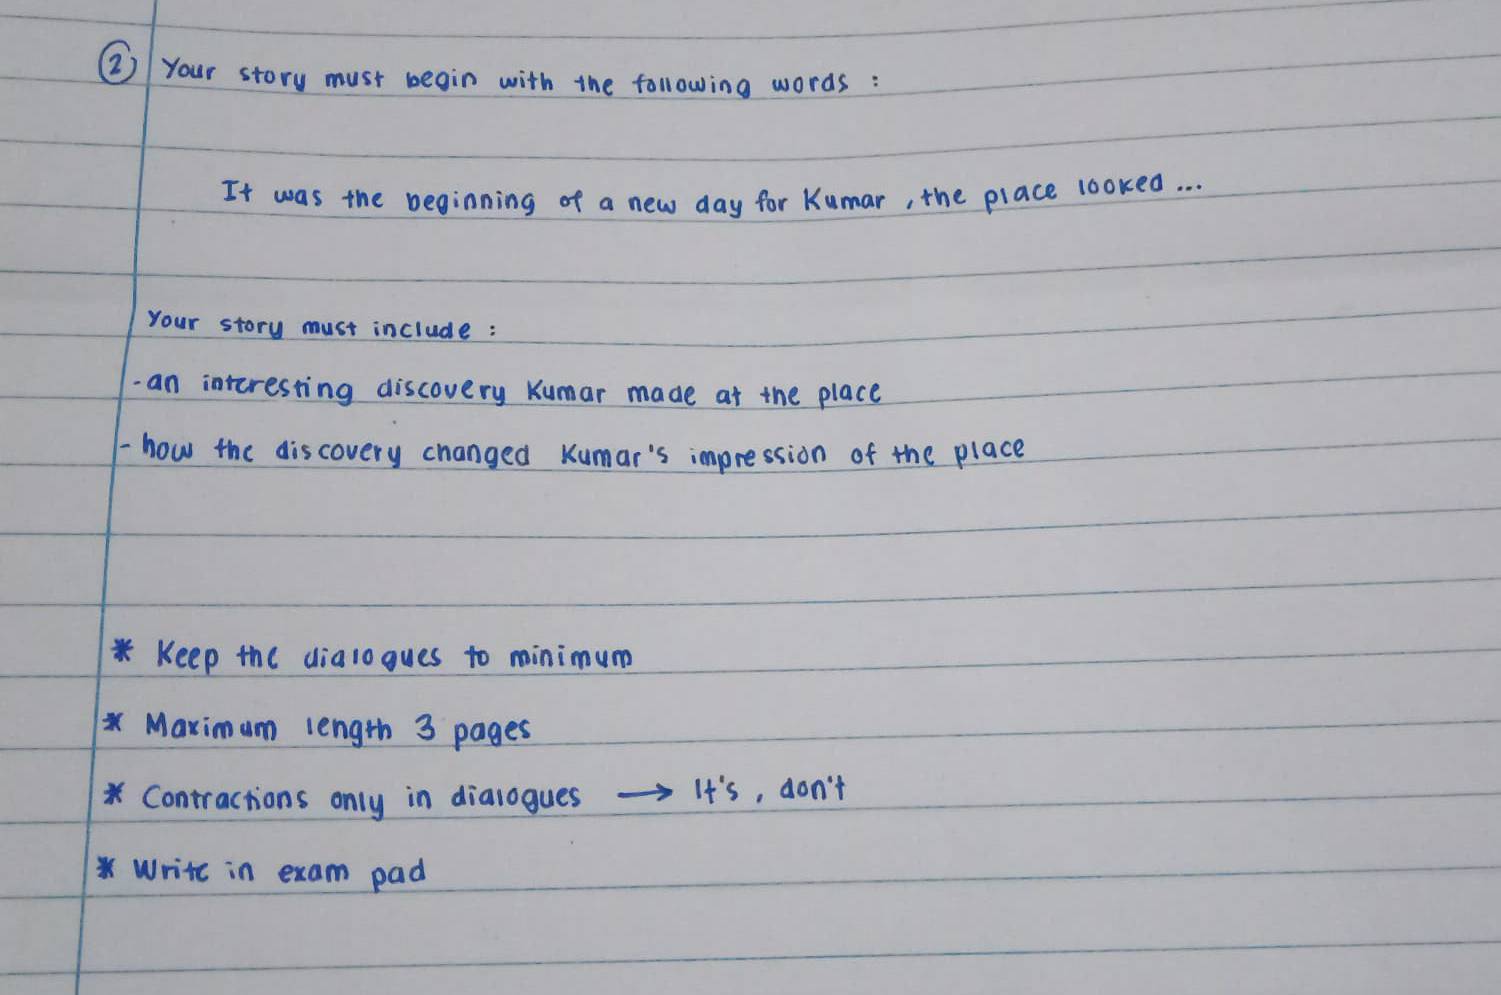 ② Your story must begin with the following words :
It was the beginning of a new day for Kumar , the place looked ...
Your story must include :
- an interesting discovery Kumar made at the place
- how the discovery changed Kumar's impression of the place
* Keep the dialogues to minimum
* Maximum length 3 pages
* Contractions only in dialogues → It's , don't
* Write in exam pad